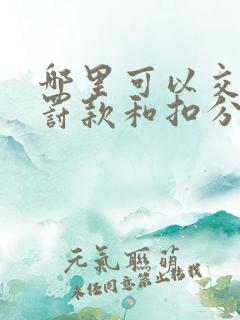 哪里可以交
罚款和扣分
元氣聯萌
未经同意禁止转载